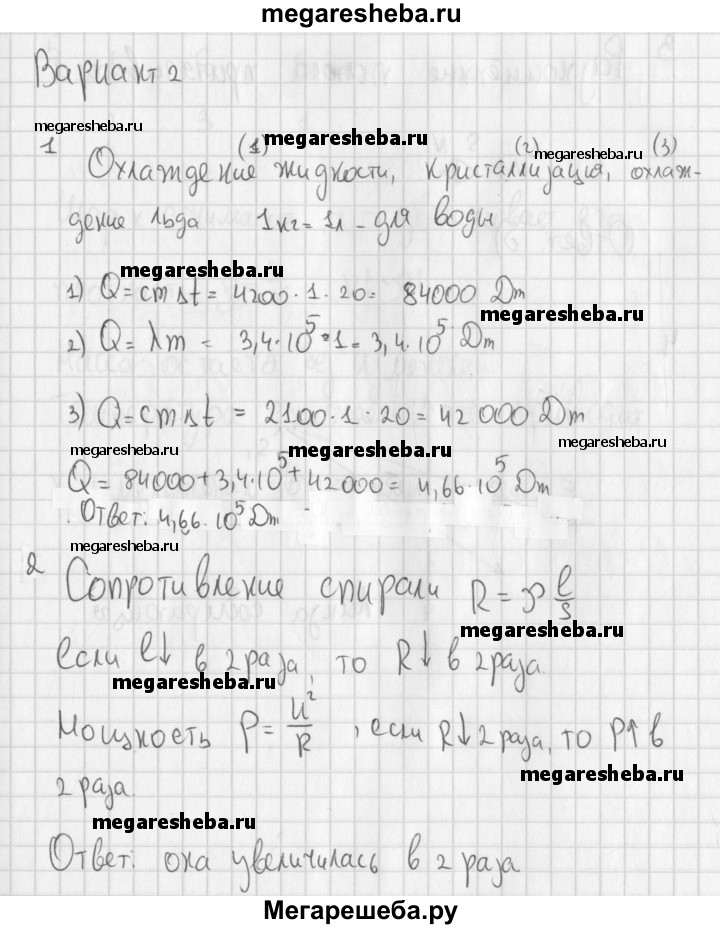 megaresheba.ru
Вариант 2
megaresheba.ru
megaresheba.ru
megaresheba.ru
1 (1) (2) (3)
Охлаждение жидкости, кристаллизация, охлаж-
дение льда 1кг = 1л - для воды
megaresheba.ru
1) Q = cmΔt = 4200·1·20 = 84000 Дж
megaresheba.ru
2) Q = λm = 3,4·10⁵·1 = 3,4·10⁵ Дж
3) Q = cmΔt = 2100·1·20 = 42000 Дж
megaresheba.ru
megaresheba.ru
megaresheba.ru
Q = 84000 + 3,4·10⁵ + 42000 = 4,66·10⁵ Дж
megaresheba.ru
megaresheba.ru
Ответ: 4,66·10⁵ Дж
megaresheba.ru
2 Сопротивление спирали R = ρ l/S
megaresheba.ru
megaresheba.ru
если l↓ в 2 раза, то R↓ в 2 раза.
megaresheba.ru
Мощность P = U²/R, если R↓ 2 раза, то P↑ в
megaresheba.ru
2 раза.
megaresheba.ru
Ответ: она увеличилась в 2 раза
Мегарешеба.ру